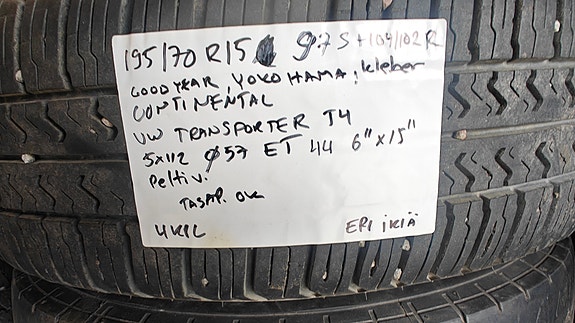 195/70 R15 97 S + 104/102 R
GOODYEAR, YOKOHAMA, Kleber
CONTINENTAL
VW TRANSPORTER T4
5x112 ⌀57 ET 44 6"x15"
Peltiv.
TASAP. OK
4KPL ERI IKIÄ